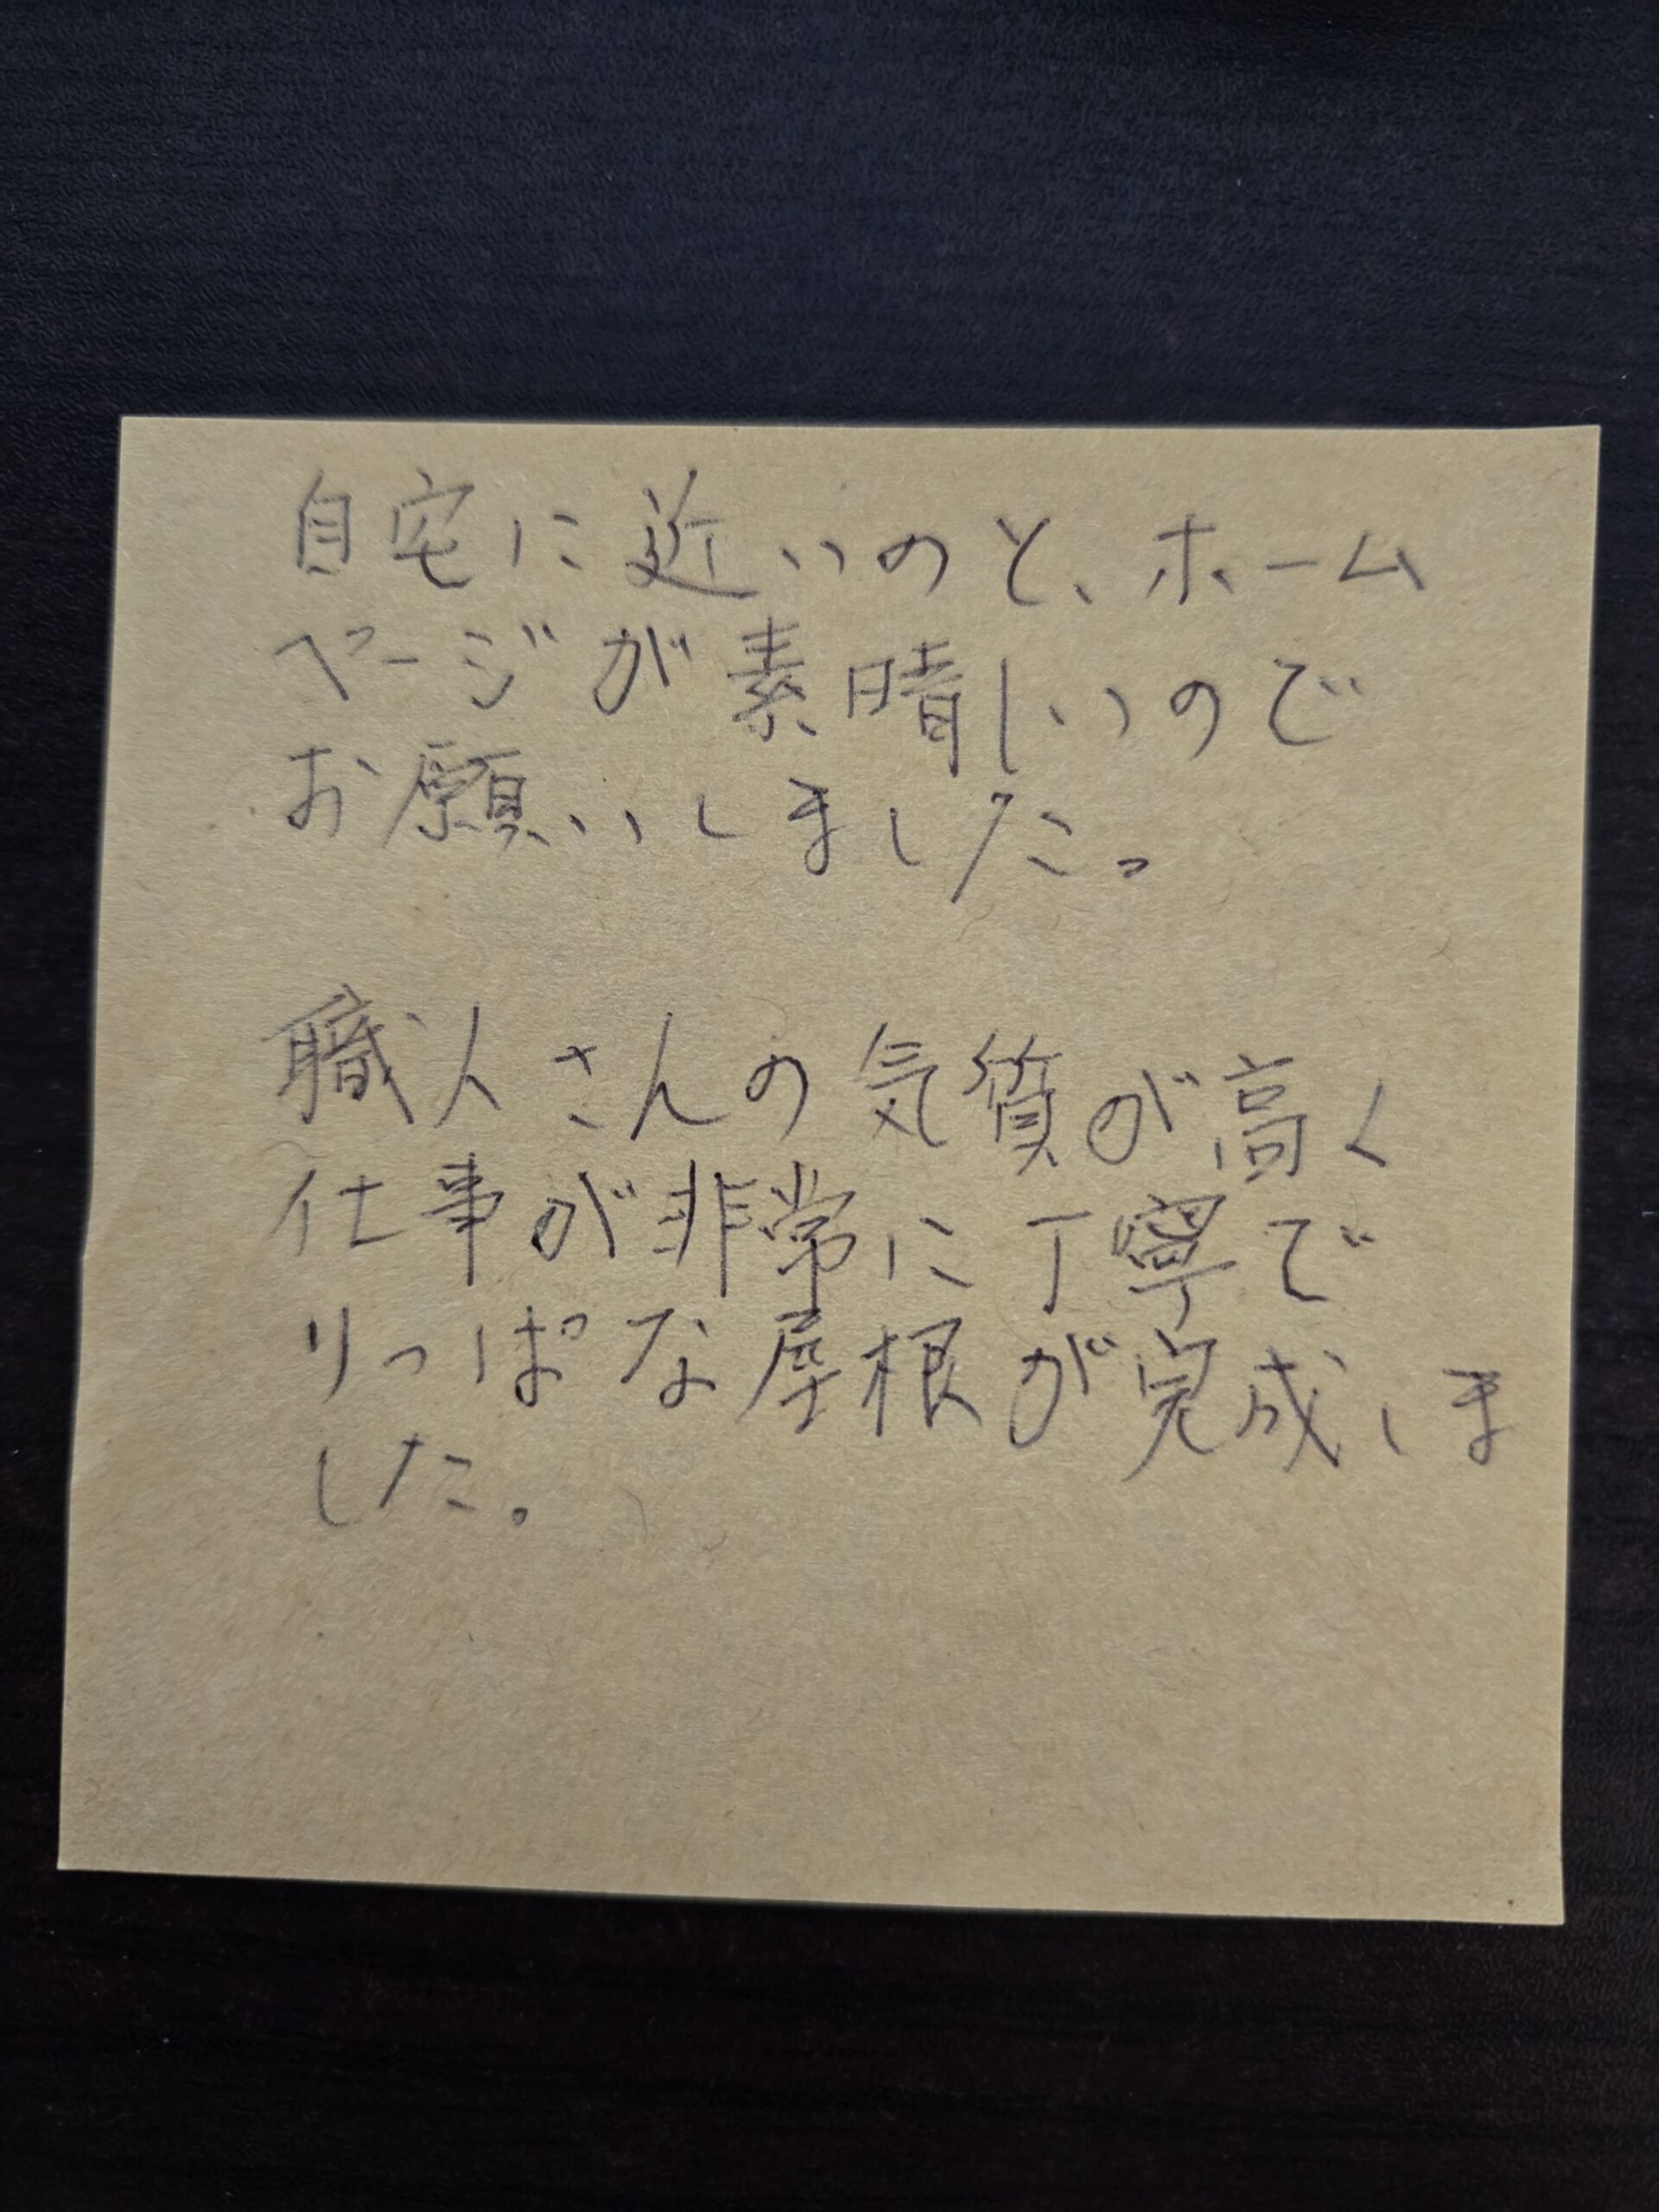 自宅に近いのと、ホーム
ページが素晴しいので
お願いしました。
職人さんの気質が高く
仕事が非常に丁寧で
りっぱな屋根が完成しま
した。